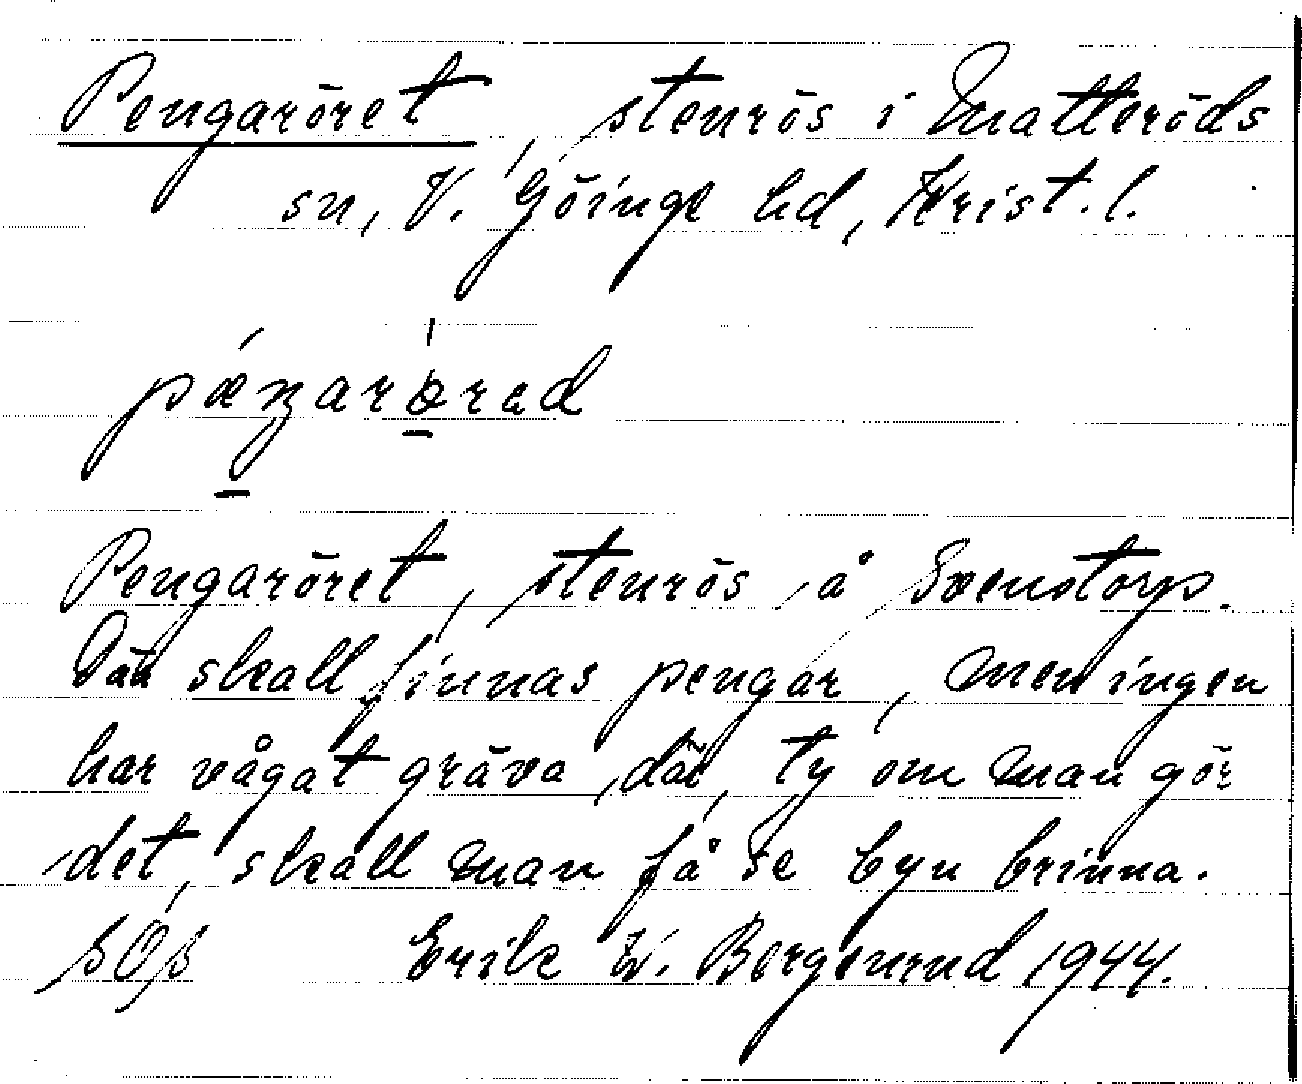 Pengaröret, stenrös i Matteröds
sn, V. Göinge hd, Krist. l.
Pengaröret, stenrös å Svenstorp.
Där skall finnas pengar, men ingen
har vågat gräva där, ty om man gör
det, skall man få se byn brinna.
Erik W. Bergenrud 1944.